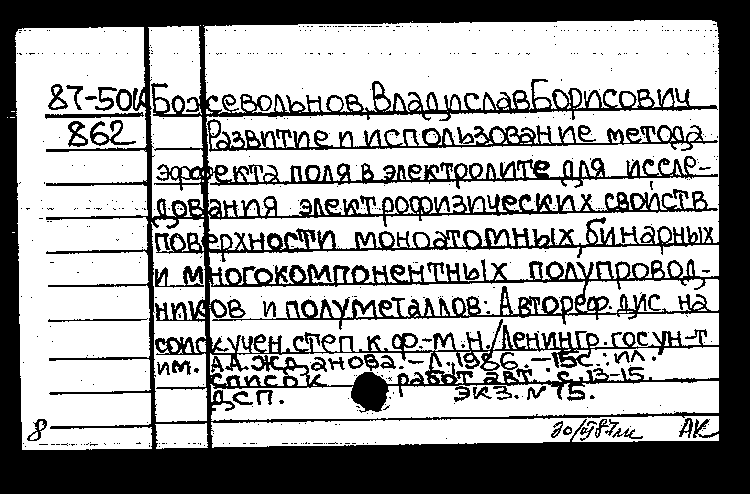 87-50К Божевольнов, Владислав Борисович
862 Развитие и использование метода
эффекта поля в электролите для иссле-
дования электрофизических свойств
поверхности моноатомных, бинарных
и многокомпонентных полупровод-
ников и полуметаллов: Автореф. дис. на
соиск. учен. степ. к. ф.-м. н. / Ленингр. гос ун-т
им. А.А. Жданова. - Л., 1986. - 15с.: ил.
Список работ авт.: с. 13-15.
ДСП. Экз. N 75.
8 АК